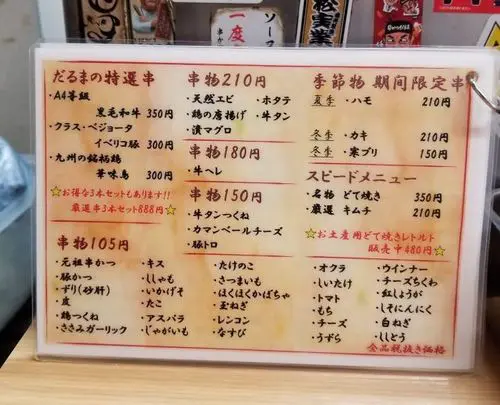 一度
ソース
だるまの特選串
・A4等級
黒毛和牛 350円
・クラス・ベジョータ
イベリコ豚 300円
・九州の銘柄鶏
華味鳥 300円
☆お得な3本セットもあります!!
厳選串3本セット888円☆
串物210円
・天然エビ ・ホタテ
・鶏の唐揚げ ・牛タン
・漬マグロ
串物180円
・牛ヘレ
串物150円
・牛タンつくね
・カマンベールチーズ
・豚トロ
季節物 期間限定串
夏季 ・ハモ 210円
冬季 ・カキ 210円
冬季 ・寒ブリ 150円
スピードメニュー
・名物 どて焼き 350円
・厳選 キムチ 210円
☆お土産用どて焼きレトルト
販売中480円☆
串物105円
・元祖串かつ ・キス ・たけのこ ・オクラ ・ウインナー
・豚かつ ・ししゃも ・さつまいも ・しいたけ ・チーズちくわ
・ずり(砂肝) ・いかげそ ・ほくほくかぼちゃ ・トマト ・紅しょうが
・皮 ・たこ ・玉ねぎ ・もち ・しそにんにく
・鶏つくね ・アスパラ ・レンコン ・チーズ ・白ねぎ
・ささみガーリック ・じゃがいも ・なすび ・うずら ・ししとう
全品税抜き価格